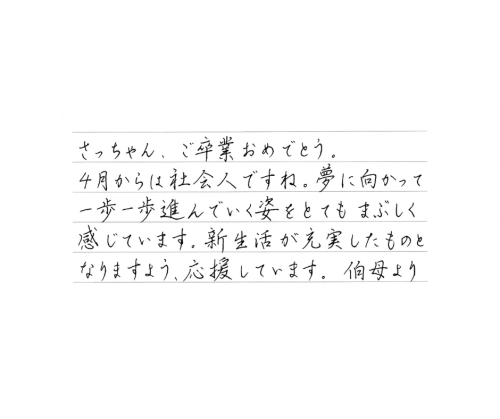 さっちゃん、ご卒業おめでとう。
4月からは社会人ですね。夢に向かって
一歩一歩進んでいく姿をとてもまぶしく
感じています。新生活が充実したものと
なりますよう、応援しています。 伯母より